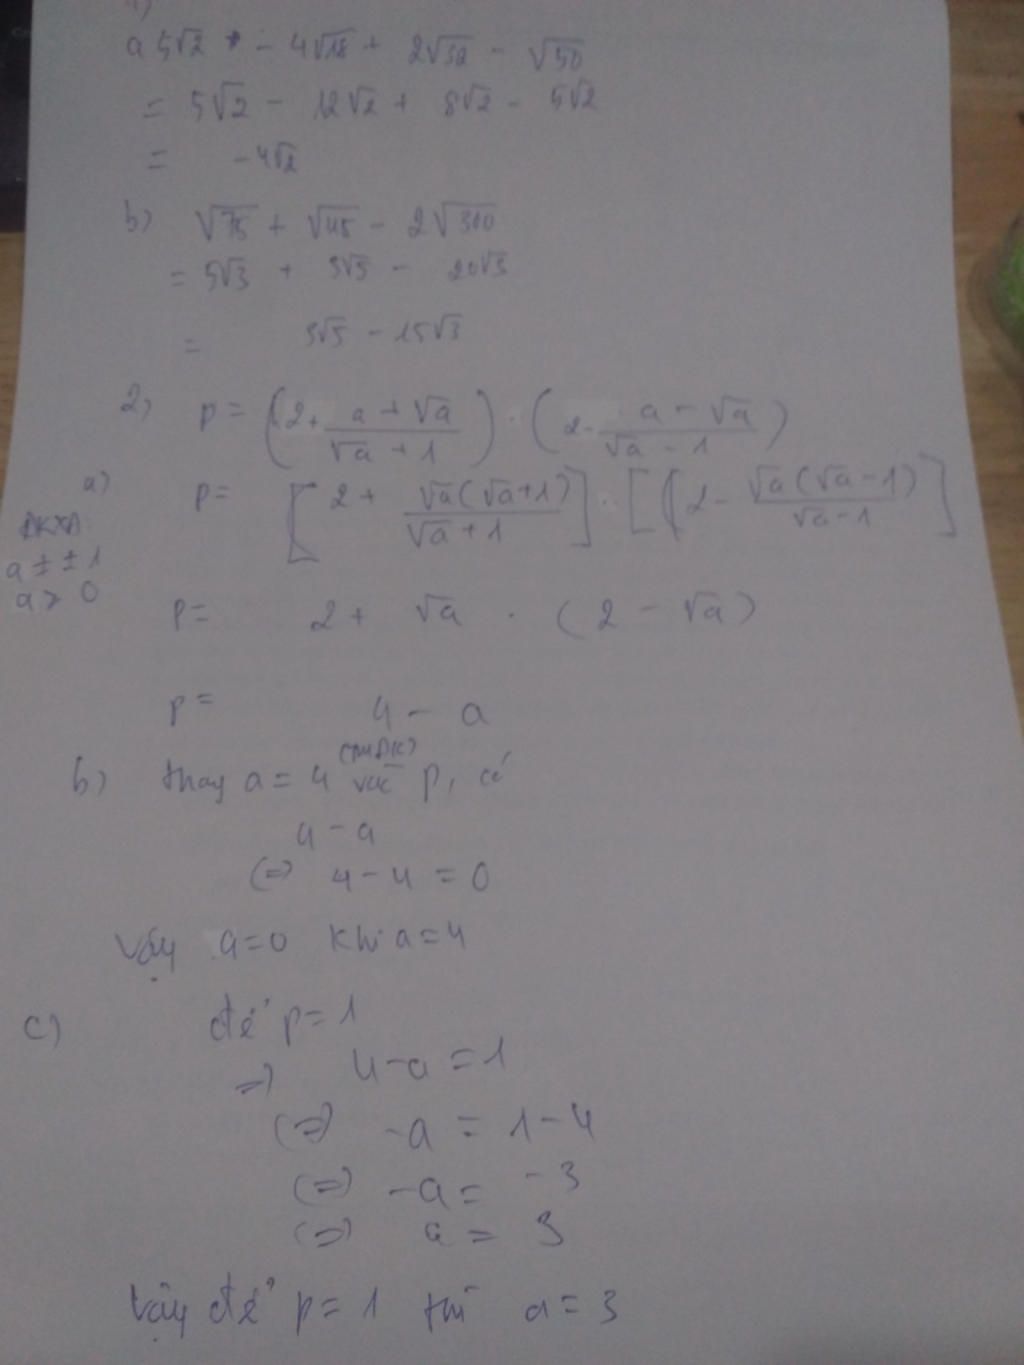 1)
a 5√2 - 4√18 + 2√32 - √50
= 5√2 - 12√2 + 8√2 - 5√2
= -4√2
b) √75 + √45 - 2√300
= 5√3 + 3√5 - 20√3
= 3√5 - 15√3
2) P = (2 + (a + √a)/(√a + 1)) . (2 - (a - √a)/(√a - 1))
a) P = [2 + √a(√a+1)/(√a+1)] . [(2 - √a(√a-1)/(√a-1)]
ĐKXĐ
a ± ±1
a > 0
P = 2 + √a . (2 - √a)
P = 4 - a
(TMĐK)
b) thay a = 4 vào P, có
4 - a
(=) 4 - 4 = 0
Vậy a=0 khi a=4
c) để P = 1
=) 4-a = 1
(=) -a = 1-4
(=) -a = -3
(=) a = 3
Vậy để P = 1 thì a = 3